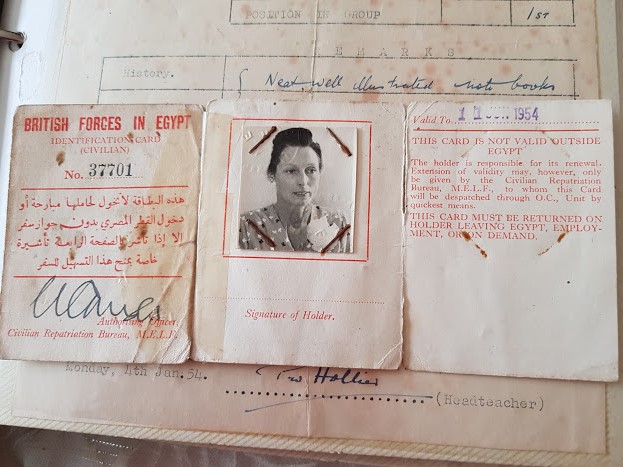 POSITION IN GROUP
1ST
REMARKS
History.
Neat, well illustrated note books
BRITISH FORCES IN EGYPT
IDENTIFICATION CARD
(CIVILIAN)
No. 37701
هذه البطاقة لا تخول لحاملها مبارحة أو
دخول القطر المصري بدون جواز سفر
الا إذا تأشر بالصفحة الرابعة تأشيرة
خاصة بمنح هذا التسهيل للسفر
Authorising Officer,
Civilian Repatriation Bureau, M.E.L.F.
Signature of Holder.
Valid To 1954
THIS CARD IS NOT VALID OUTSIDE
EGYPT
The holder is responsible for its renewal.
Extension of validity may, however, only
be given by the Civilian Repatriation
Bureau, M.E.L.F., to whom this Card
will be despatched through O.C., Unit by
quickest means.
THIS CARD MUST BE RETURNED ON
HOLDER LEAVING EGYPT, EMPLOY-
MENT, OR ON DEMAND.
Monday, 4th Jan. 54.
Hollier
(Headteacher)